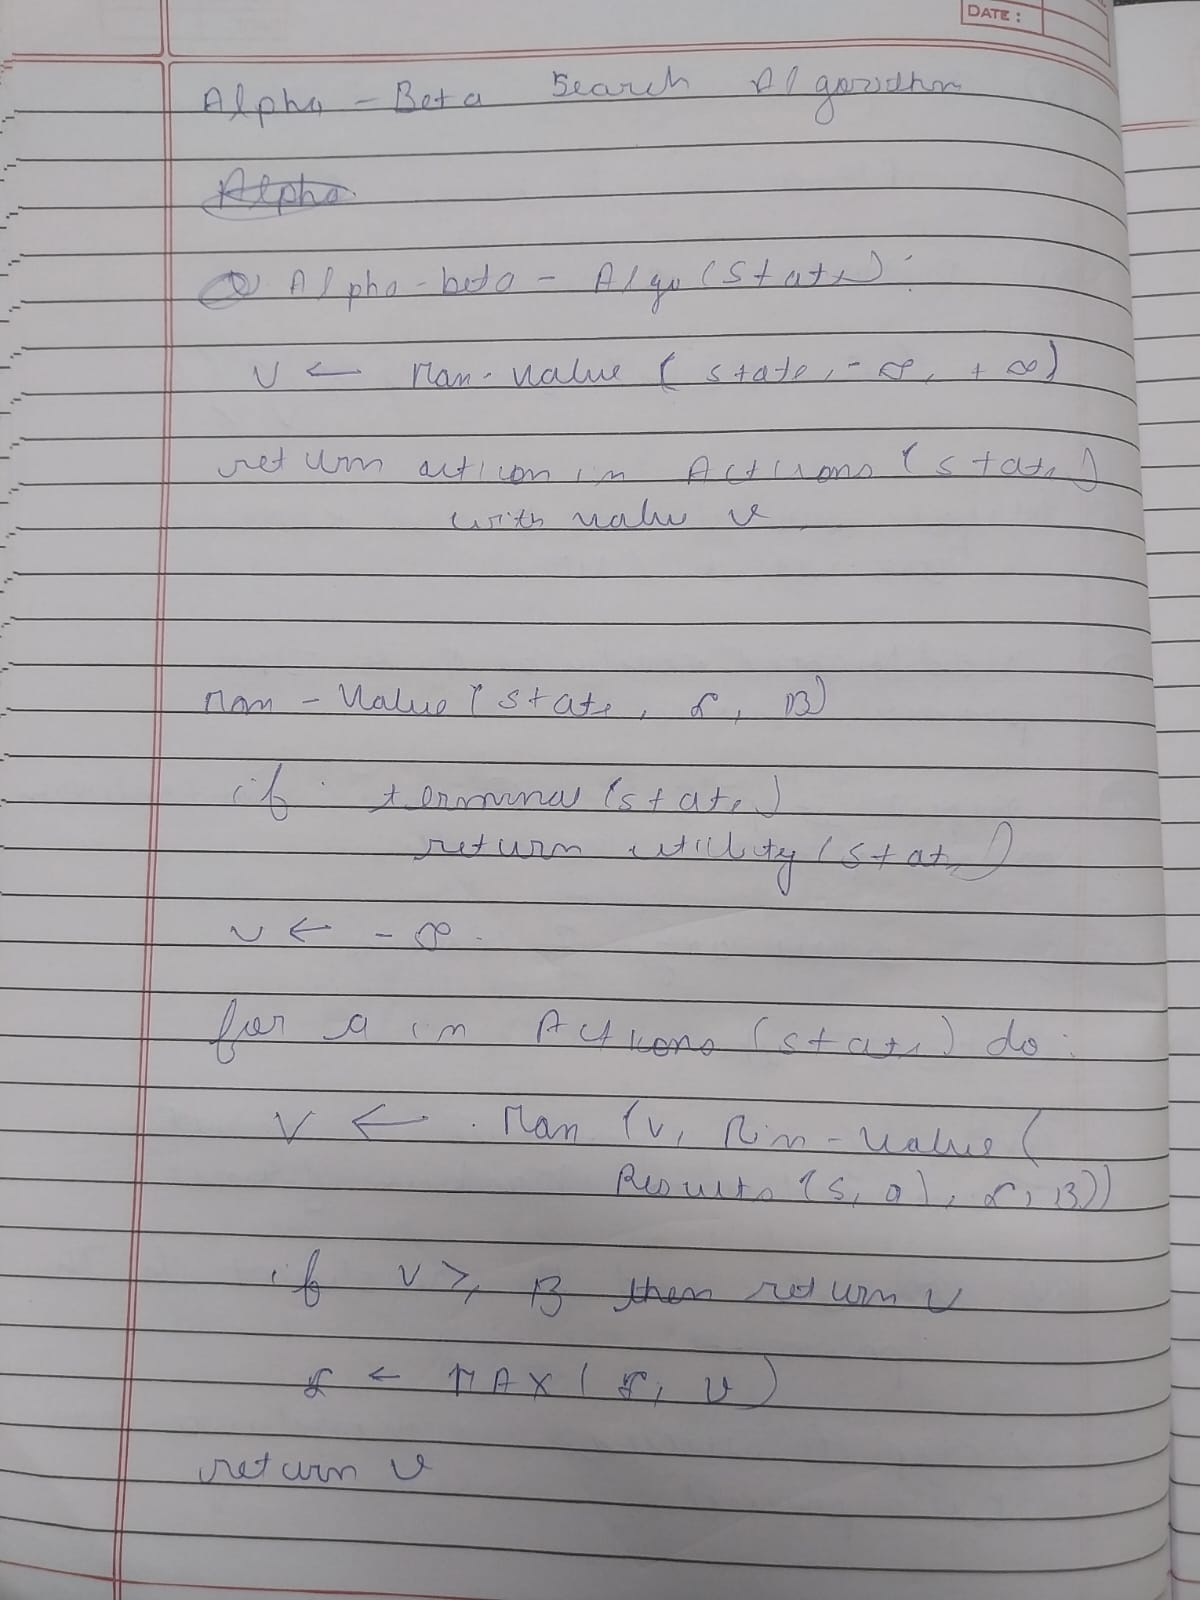 DATE :
Alpha - Beta Search Algorithm
Alpha
Alpha-beta - Algo (State) :
v ← Max-Value ( state, - ∞, + ∞)
return action in Actions (state)
with value v
Max - Value (state, α, β)
if terminal (state)
return utility (state)
v ← - ∞
for a in Actions (state) do :
v ← Max (v, Min - Value (
Results (s, a), α, β))
if v ≥ β then return v
α ← MAX ( α, v )
return v